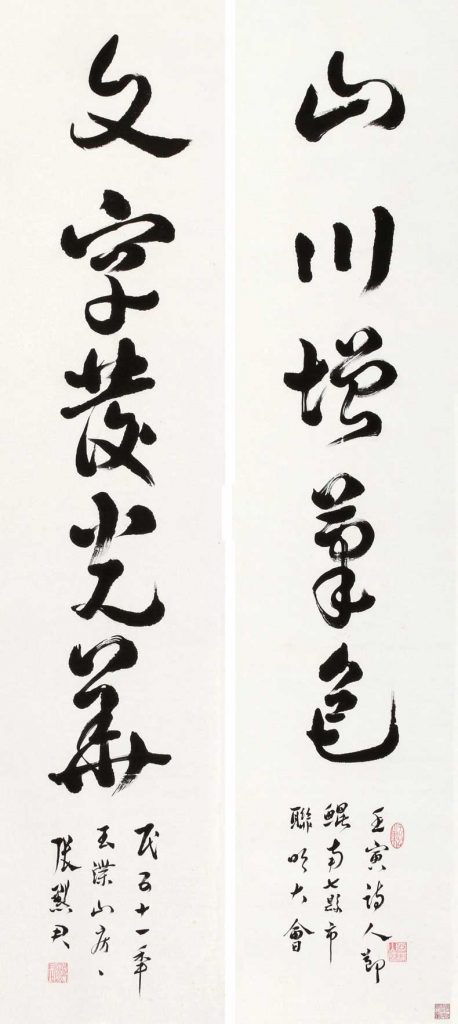 山川增筆色
壬寅詩人節
鯤南七縣市
聯吟大會
文字發光華
民五十一年
玉渫山房、
張默君